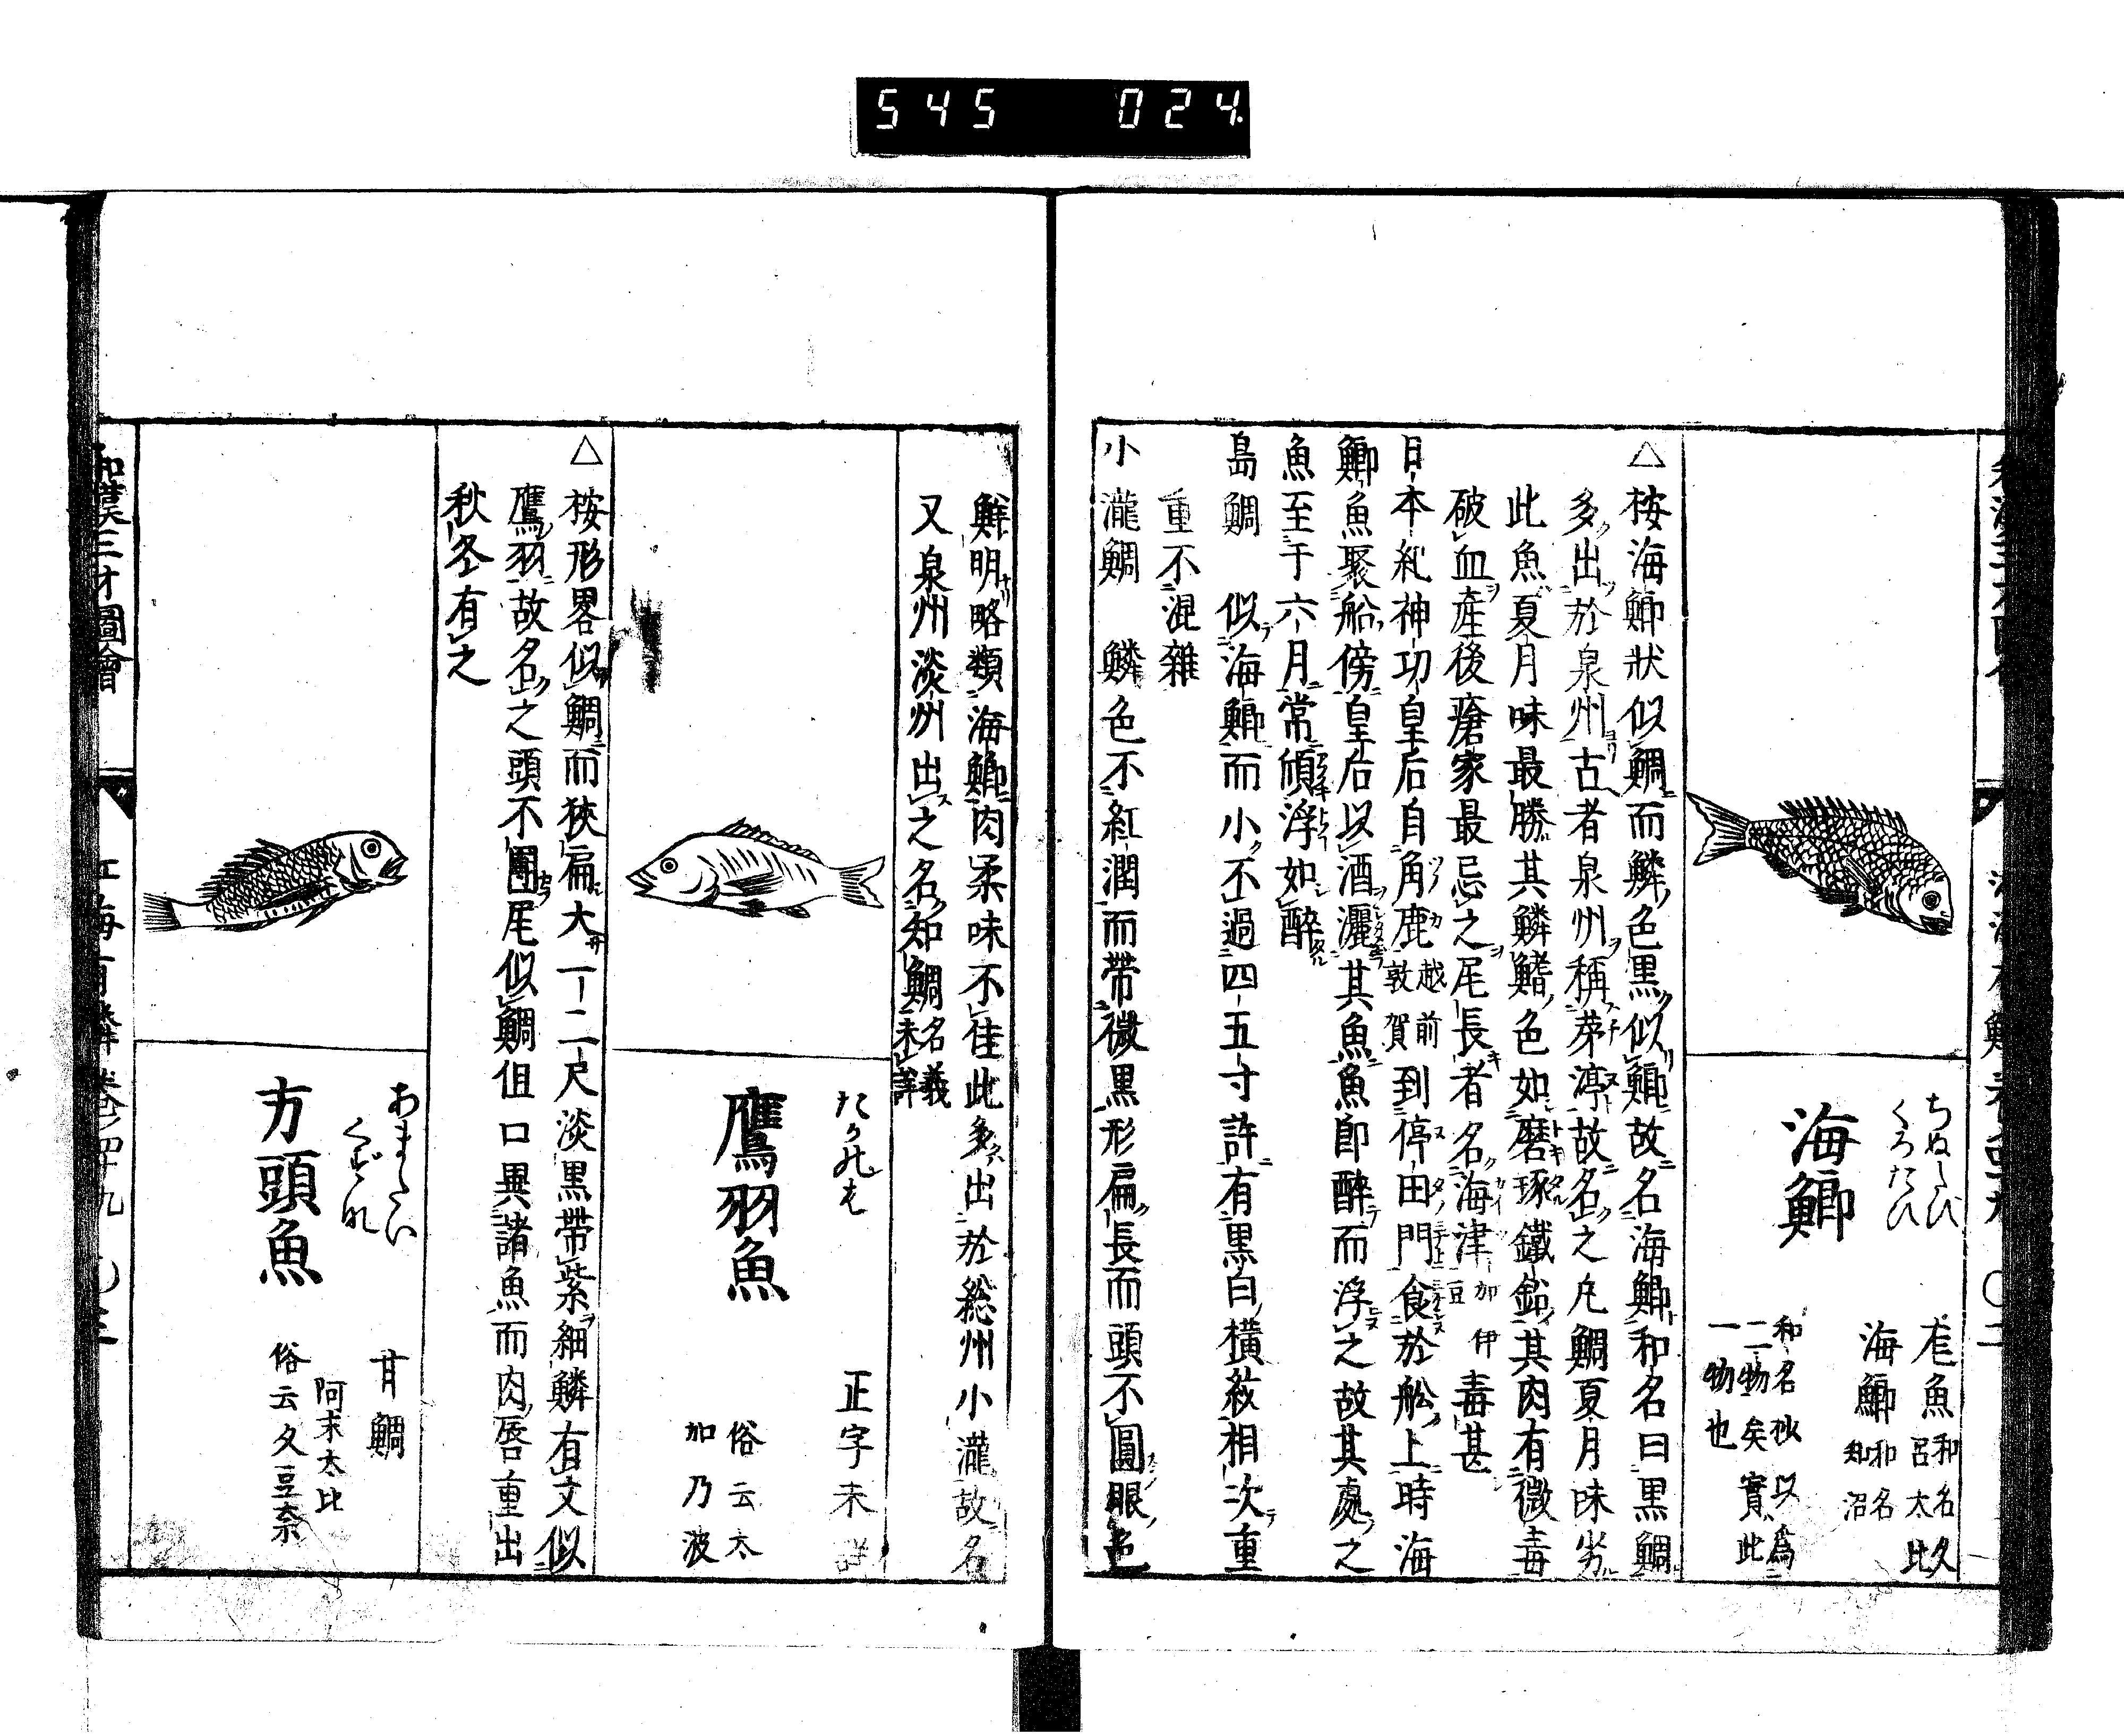 545 024
ちぬだひ
くろたひ
海鯽
尨魚 和名久呂太比
海鯽 和名知沼
和名抄以為
二物矣實此
一物也
△按海鯽狀似鯛而鱗色黒似鯽故名海鯽和名曰黒鯛
多出於泉州古者泉州稱茅渟故名之凡鯛夏月味劣
此魚夏月味最勝其鱗鰭色如磨琢鐵鉛其肉有微毒
破血産後瘡家最忌之尾長者名海津加伊豆毒甚
日本紀神功皇后自角鹿越前敦賀到停田門食於舩上時海
鯽魚聚船傍皇后以酒灑其魚魚即醉而浮之故其處之
魚至于六月常傾浮如醉
島鯛 似海鯽而小不過四五寸許有黒白橫紋相次重
重不混雜
小瀧鯛 鱗色不紅潤而帶微黒形扁長而頭不圓眼色
鮮明略類海鯽肉柔味不佳此多出於総州小瀧故名
又泉州淡州出之名知鯛名義未詳
たかのは
鷹羽魚
正字未詳
俗云太
加乃波
△按形畧似鯛而狹扁大一二尺淡黒帶紫細鱗有文似
鷹羽故名之頭不團尾似鯛但口異諸魚而肉唇重出
秋冬有之
あまだい
くずな
方頭魚
甘鯛
阿末太比
俗云久豆奈
和漢三才圖會
江海有鱗 卷之四十九 〇三